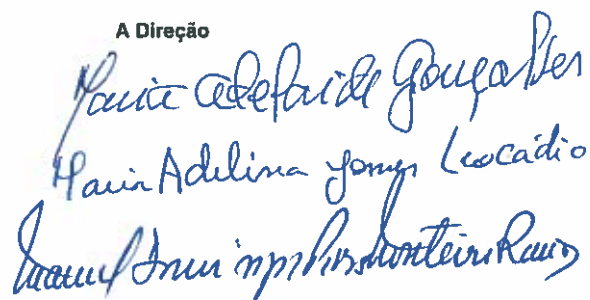 A Direção
Maria Adelaide Gonçalves
Maria Adelina Gomes Leocádio
Manuel Monteiro